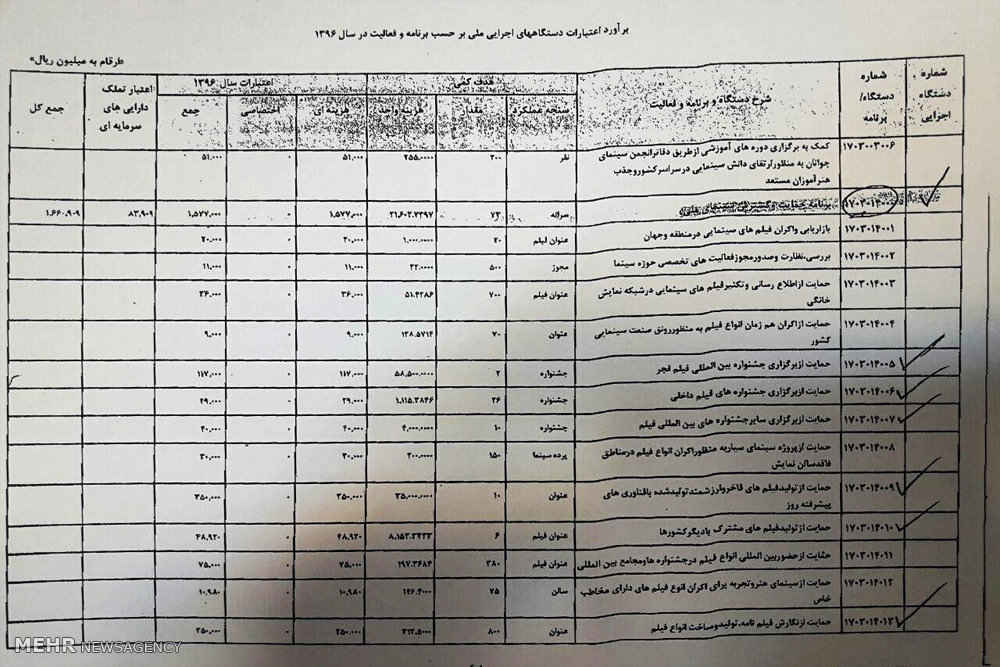 برآورد اعتبارات دستگاههای اجرایی ملی بر حسب برنامه و فعالیت در سال ۱۳۹۶
«ارقام به میلیون ریال»
شماره دستگاه اجرایی
شماره دستگاه/ برنامه
شرح دستگاه و برنامه و فعالیت
هدف کمی
اعتبارات سال ۱۳۹۶
اعتبار تملک دارایی های سرمایه ای
جمع کل
سنجه عملکرد
مقدار
هزینه ای
اختصاصی
جمع
۱۷۰۳۰۰۳۰۰۶ کمک به برگزاری دوره های آموزشی ازطریق دفاترانجمن سینمای نفر ۲۰۰ ۲۵۵.۰۰۰۰ ۵۱,۰۰۰ ۰ ۵۱,۰۰۰
جوانان به منظورارتقای دانش سینمایی درسراسرکشوروجذب
هنرآموزان مستعد
سرانه ۷۳ ۲۱,۶۰۲.۷۳۹۷ ۱,۵۷۷,۰۰۰ ۰ ۱,۵۷۷,۰۰۰ ۸۳,۹۰۹ ۱,۶۶۰,۹۰۹
۱۷۰۳۰۱۴۰۰۱ بازاریابی واکران فیلم های سینمایی درمنطقه وجهان عنوان فیلم ۲۰ ۱,۰۰۰.۰۰۰۰ ۲۰,۰۰۰ ۰ ۲۰,۰۰۰
۱۷۰۳۰۱۴۰۰۲ بررسی،نظارت وصدورمجوزفعالیت های تخصصی حوزه سینما مجوز ۵۰۰ ۲۲.۰۰۰۰ ۱۱,۰۰۰ ۰ ۱۱,۰۰۰
۱۷۰۳۰۱۴۰۰۳ حمایت ازاطلاع رسانی وتکثیرفیلم های سینمایی درشبکه نمایش عنوان فیلم ۷۰۰ ۵۱.۴۲۸۶ ۳۶,۰۰۰ ۰ ۳۶,۰۰۰
خانگی
۱۷۰۳۰۱۴۰۰۴ حمایت ازاکران هم زمان انواع فیلم به منظوررونق صنعت سینمایی عنوان ۷۰ ۱۲۸.۵۷۱۴ ۹,۰۰۰ ۰ ۹,۰۰۰
کشور
۱۷۰۳۰۱۴۰۰۵ حمایت ازبرگزاری جشنواره بین المللی فیلم فجر جشنواره ۲ ۵۸,۵۰۰.۰۰۰۰ ۱۱۷,۰۰۰ ۰ ۱۱۷,۰۰۰
۱۷۰۳۰۱۴۰۰۶ حمایت ازبرگزاری جشنواره های فیلم داخلی جشنواره ۲۶ ۱,۱۱۵.۳۸۴۶ ۲۹,۰۰۰ ۰ ۲۹,۰۰۰
۱۷۰۳۰۱۴۰۰۷ حمایت ازبرگزاری سایرجشنواره های بین المللی فیلم جشنواره ۱۰ ۴,۰۰۰.۰۰۰۰ ۴۰,۰۰۰ ۰ ۴۰,۰۰۰
۱۷۰۳۰۱۴۰۰۸ حمایت ازپروژه سینمای سیاربه منظوراکران انواع فیلم درمناطق پرده سینما ۱۵۰ ۲۰۰.۰۰۰۰ ۳۰,۰۰۰ ۰ ۳۰,۰۰۰
فاقدسالن نمایش
۱۷۰۳۰۱۴۰۰۹ حمایت ازتولیدفیلم های فاخروارزشمندتولیدشده بافناوری های عنوان ۱۰ ۳۵,۰۰۰.۰۰۰۰ ۳۵۰,۰۰۰ ۰ ۳۵۰,۰۰۰
پیشرفته روز
۱۷۰۳۰۱۴۰۱۰ حمایت ازتولیدفیلم های مشترک بادیگرکشورها عنوان فیلم ۶ ۸,۱۵۳.۳۳۳۳ ۴۸,۹۲۰ ۰ ۴۸,۹۲۰
۱۷۰۳۰۱۴۰۱۱ حمایت ازحضوربین المللی انواع فیلم درجشنواره هاومجامع بین المللی عنوان فیلم ۳۸۰ ۱۹۷.۳۶۸۴ ۷۵,۰۰۰ ۰ ۷۵,۰۰۰
۱۷۰۳۰۱۴۰۱۲ حمایت ازسینمای هنروتجربه برای اکران انوع فیلم های دارای مخاطب سالن ۷۵ ۱۴۶.۴۰۰۰ ۱۰,۹۸۰ ۰ ۱۰,۹۸۰
خاص
۱۷۰۳۰۱۴۰۱۳ حمایت ازنگارش فیلم نامه،تولیدوساخت انواع فیلم عنوان ۸۰۰ ۳۱۲.۵۰۰۰ ۲۵۰,۰۰۰ ۰ ۲۵۰,۰۰۰
MEHR NEWSAGENCY